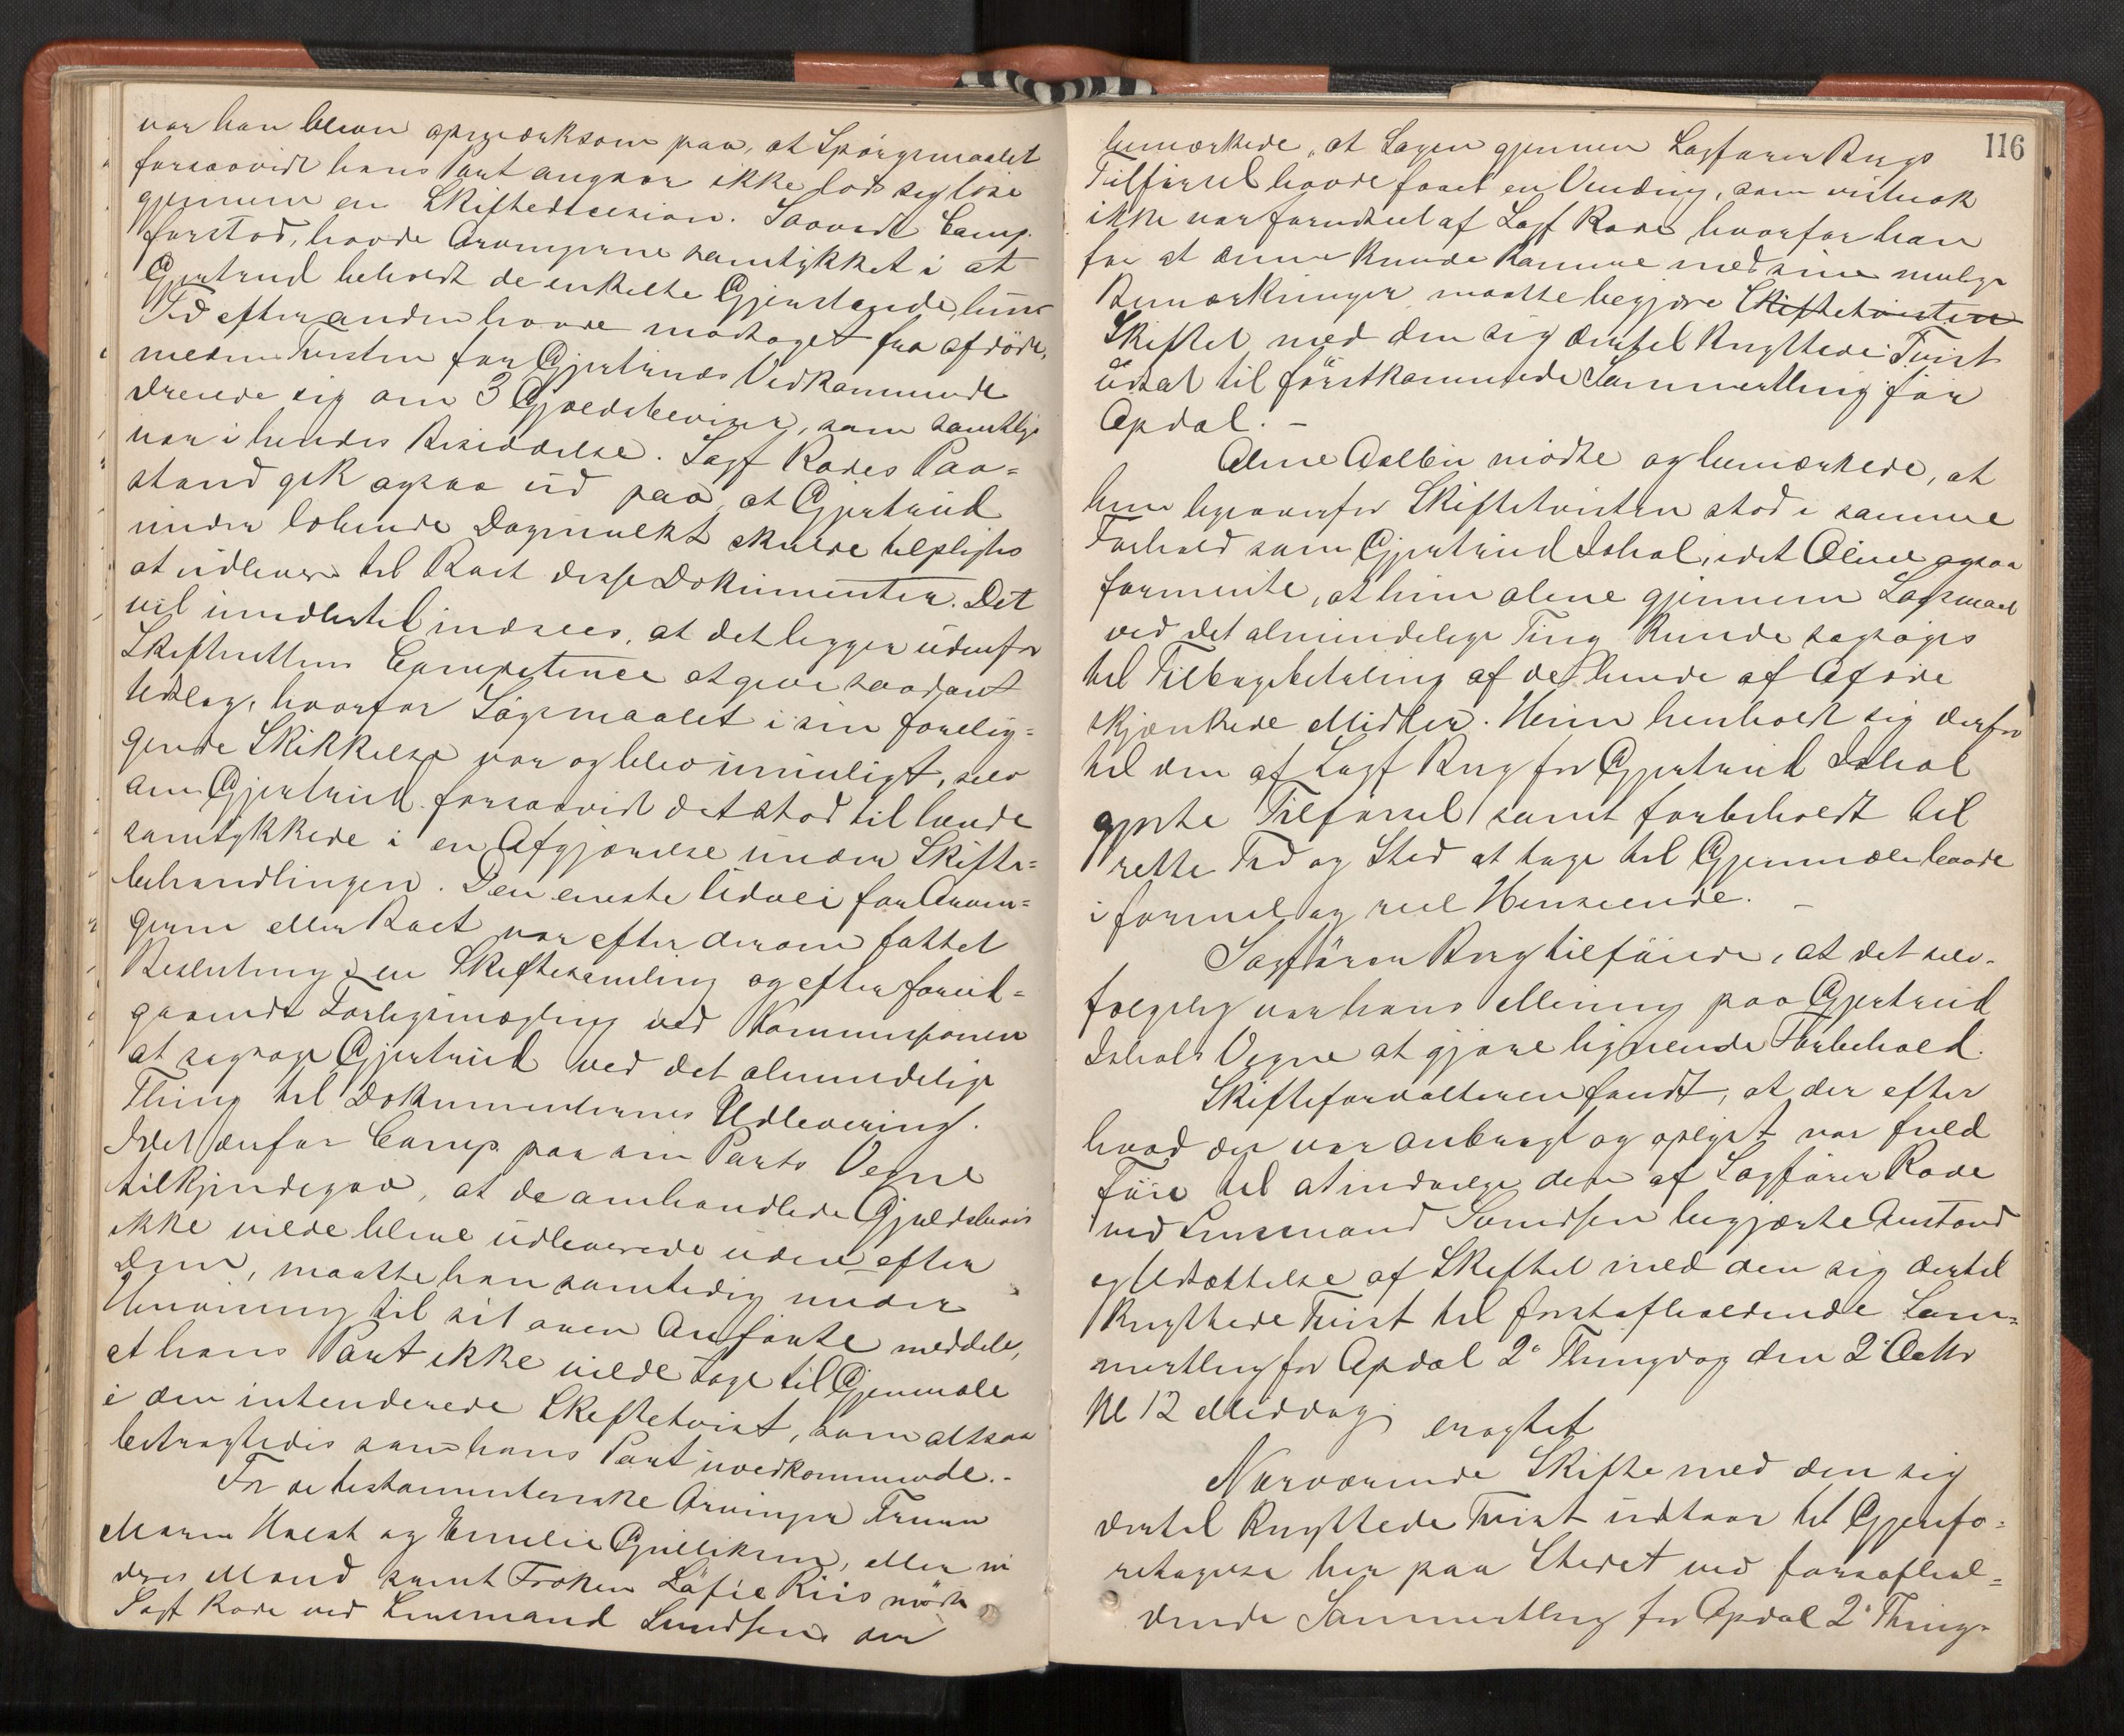 var han bleven opmærksom paa, at Spörgsmaalet
forsaavidt hans Part angaar ikke lod sig löse
gjennem en Skiftedecision. Saavidt Comp.
forstod, havde Arvingerne samtykket i at
Gjertrud beholdt de enkelte Gjenstande, hun
Tid efter anden havde modtaget fra afdöde,
medens Tvisten for Gjertruds Vedkommende
dreiede sig om 3 Gjældsbeviser, som samtlige
var i hendes Besiddelse. Sagf Rodes Paa=
stand gik ogsaa ud paa, at Gjertrud
under löbende Dagmulkt skulde tilpligtes
at udlevere til Boet disse Dokumenter. Det
vil imidlertid indsees, at det ligger udenfor
Skifterettens Competence at give saadant
Udlæg, hvorfor Sögsmaalet i sin forelig=
gende Skikkelse var og blev umuligt, selv
om Gjertrud forsaavidt det stod til hende
samtykkede i en Afgjörelse under Skifte=
behandlingen. Den eneste Udvei for Arvin=
gerne eller Boet var efter derom fattet
Beslutning i en Skiftesamling og efter forud=
gaaende Forligsmægling ved Kommissionen
at sagsöge Gjertrud ved det almindelige
Thing til Dokumenternes Udlevering.
Idet derfor Comp. paa sin Parts Vegne
tilkjendegav, at de omhandlede Gjældsbevis
ikke vilde blive udleverede uden efter
Dom, maatte han samtidig under
Henvisning til sit oven Anförte meddele,
at hans Part ikke vilde tage til Gjenmæle
i den intenderede Skiftetvist, som altsaa
betragtedes som hans Part uvedkommende.-
For de testamentariske Arvinger Fruerne
Maren Holst og Emilie Gulliksen, eller
deres Mænd samt Fröken Sofie Riis mödte
Sagf Rode ved Lensmand Svendsen der
116
bemærkede, at Sagen gjennem Sagförer Brygs
Tilförsel havde faaet en Vending, som vistnok
ikke var forudseet af Sagf Rode hvorfor han
for at denne kunde komme med sine mulige
Bemærkninger maatte begjære Skiftetvisten
Skiftet med den sig dertil knyttede Tvist
udsat til förstkommende Sommerthing for
Opdal. -
Oline Aalbu mödte og bemærkede, at
hun ligeoverfor Skiftetvisten stod i samme
Forhold som Gjertrud Ishol, idet Oline ogsaa
formente, at hun alene gjennem Sögsmaal
ved det almindelige Ting kunde sagsöges
til Tilbagebetaling af de hende af Afdöde
skjænkede Midler. Hun henholdt sig derfor
til den af Sagf Bryg for Gjertrud Ishol
gjorte Tilförsel samt forbeholdt til
rette Tid og Sted at tage til Gjenmæle baade
i formel og reel Henseende. -
Sagförer Bryg tilföiede, at det selv-
fölgelig var hans Mening paa Gjertrud
Ishols Vegne at gjöre lignende Forbehold.
Skifteforvalteren fandt, at der efter
hvad der var anbragt og oplyst var fuld
Föie til at indvilge den af Sagförer Rode
ved Lensmand Svendsen begjærte Anstand
og Udsættelse af Skiftet med den sig dertil
knyttede Tvist til förstafholdende Som=
merthing for Opdal 2. Thingdag den 2. Octbr
Kl 12 Middag eragtet
Nærværende Skifte med den sig
dertil knyttede Tvist udstaar til Gjenfo=
retagelse her paa Stedet ved förstafhol=
dende Sommerthing for Opdal 2. Thing-